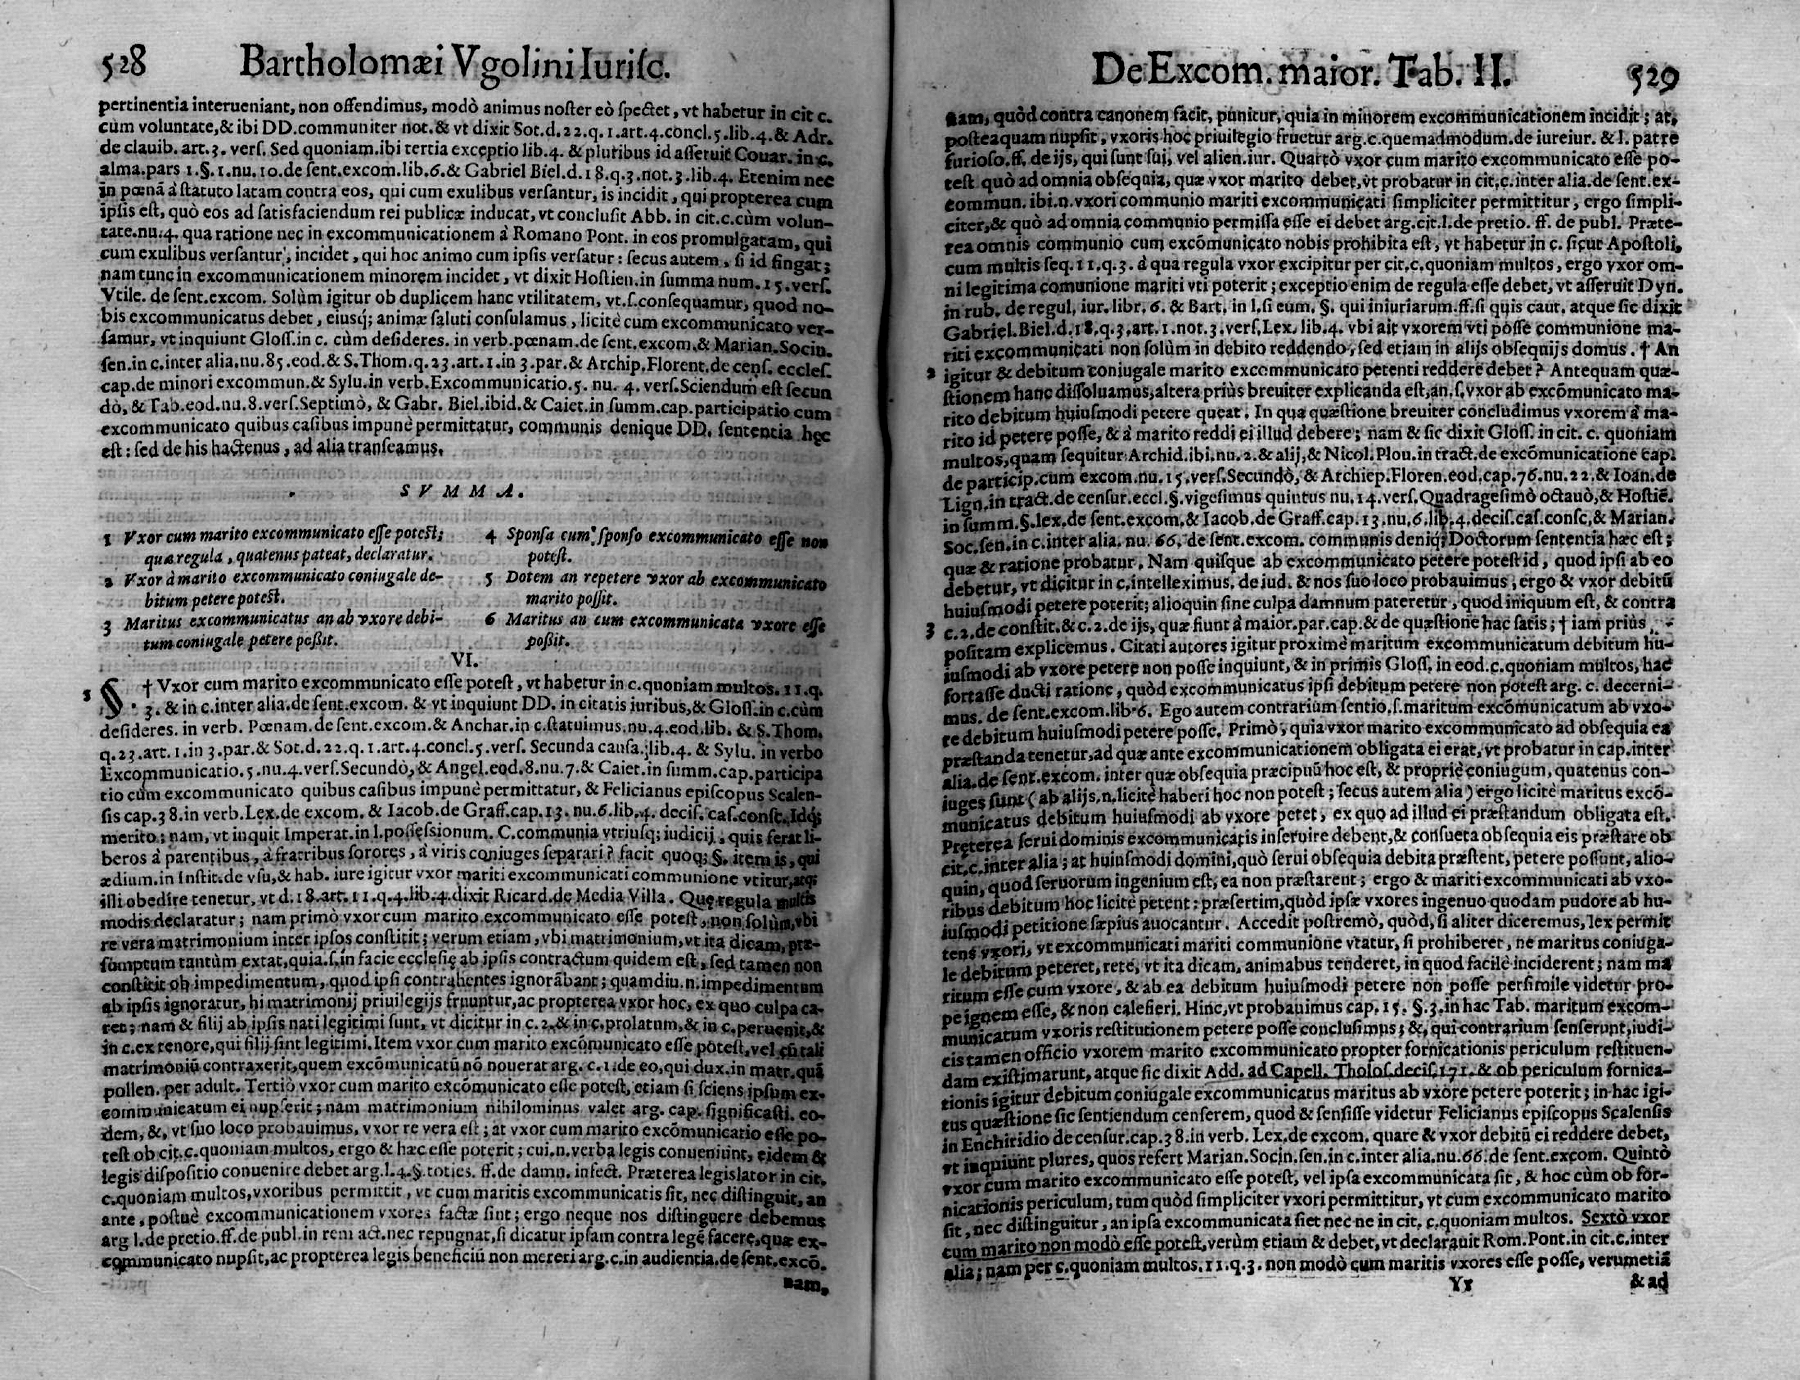 528 Bartholomæi Vgolini Iurisc.
pertinentia interueniant, non offendimus, modò animus noster eò spectet, vt habetur in cit c.
cùm voluntate, & ibi DD. communiter not. & vt dixit Sot. d. 22. q. 1. art. 4. concl. 5. lib. 4. & Adr.
de clauib. art. 3. vers. Sed quoniam. ibi tertia exceptio lib. 4. & pluribus id asseruit Couar. in c.
alma. pars 1. §. 1. nu. 10. de sent. excom. lib. 6. & Gabriel Biel. d. 18. q. 3. not. 3. lib. 4. Etenim nec
in pœnā à statuto latam contra eos, qui cum exulibus versantur, is incidit, qui propterea cum
ipsis est, quò eos ad satisfaciendum rei publicæ inducat, vt conclusit Abb. in cit. c. cùm volun-
tate. nu. 4. qua ratione nec in excommunicationem à Romano Pont. in eos promulgatam, qui
cum exulibus versantur, incidet, qui hoc animo cum ipsis versatur: secus autem, si id fingat;
nam tunc in excommunicationem minorem incidet, vt dixit Hostien. in summa num. 15. vers.
Vtile. de sent. excom. Solùm igitur ob duplicem hanc vtilitatem, vt. s. consequamur, quod no-
bis excommunicatus debet, eiusq; animæ saluti consulamus, licitè cum excommunicato ver-
samur, vt inquiunt Gloss. in c. cùm desideres. in verb. pœnam. de sent. excom. & Marian. Socin.
sen. in c. inter alia. nu. 85. eod. & S. Thom. q. 23. art. 1. in 3. par. & Archip. Florent. de cens. eccles.
cap. de minori excommun. & Sylu. in verb. Excommunicatio. 5. nu. 4. vers. Sciendum est secun
dò, & Tab. eod. nu. 8. vers. Septimò, & Gabr. Biel. ibid. & Caiet. in summ. cap. participatio cum
excommunicato quibus casibus impunè permittatur, communis denique DD. sententia hęc
est: sed de his hactenus, ad alia transeamus.
SVMMA.
1 Vxor cum marito excommunicato esse potest;
quæ regula, quatenus pateat, declaratur.
2 Vxor à marito excommunicato coniugale de-
bitum petere potest.
3 Maritus excommunicatus an ab vxore debi-
tum coniugale petere possit.
4 Sponsa cum sponso excommunicato esse non
potest.
5 Dotem an repetere vxor ab excommunicato
marito possit.
6 Maritus an cum excommunicata vxore esse
possit.
VI.
1 §. † Vxor cum marito excommunicato esse potest, vt habetur in c. quoniam multos. 11. q.
3. & in c. inter alia. de sent. excom. & vt inquiunt DD. in citatis iuribus, & Gloss. in c. cùm
desideres. in verb. Pœnam. de sent. excom. & Anchar. in c. statuimus. nu. 4. eod. lib. & S. Thom.
q. 23. art. 1. in 3. par. & Sot. d. 22. q. 1. art. 4. concl. 5. vers. Secunda causa. lib. 4. & Sylu. in verbo
Excommunicatio. 5. nu. 4. vers. Secundò, & Angel. eod. 8. nu. 7. & Caiet. in summ. cap. participa
tio cùm excommunicato quibus casibus impunè permittatur, & Felicianus episcopus Scalen-
sis cap. 38. in verb. Lex. de excom. & Iacob. de Graff. cap. 13. nu. 6. lib. 4. decis. cas. consc. Idq;
merito; nam, vt inquit Imperat. in l. possessionum. C. communia vtriusq; iudicij, quis ferat li-
beros à parentibus, à fratribus sorores, à viris coniuges separari? facit quoq; §. item is, qui
ædium. in Instit. de vsu, & hab. iure igitur vxor mariti excommunicati communione vtitur, atq;
illi obedire tenetur, vt d. 18. art. 11. q. 4. lib. 4. dixit Ricard. de Media Villa. Quę regula multis
modis declaratur; nam primò vxor cum marito excommunicato esse potest, non solùm, vbi
re vera matrimonium inter ipsos constitit; verum etiam, vbi matrimonium, vt ita dicam, præ-
sumptum tantùm extat, quia. s. in facie ecclesię ab ipsis contractum quidem est, sed tamen non
constitit ob impedimentum, quod ipsi contrahentes ignorābant; quamdiu. n. impedimentum
ab ipsis ignoratur, hi matrimonij priuilegijs fruuntur, ac propterea vxor hoc, ex quo culpa ca-
ret; nam & filij ab ipsis nati legitimi sunt, vt dicitur in c. 2. & in c. prolatum, & in c. peruenit, &
in c. ex tenore, qui filij sint legitimi. Item vxor cum marito excōmunicato esse potest, vel cū tali
matrimoniū contraxerit, quem excōmunicatū nō nouerat arg. c. 1. de eo, qui dux. in matr. quā
pollen. per adult. Tertiò vxor cum marito excōmunicato esse potest, etiam si sciens ipsum ex-
communicatum ei nupserit; nam matrimonium nihilominus valet arg. cap. significasti. eo-
dem, &, vt suo loco probauimus, vxor re vera est; at vxor cum marito excōmunicatio esse po-
test ob cit. c. quoniam multos, ergo & hæc esse poterit; cui. n. verba legis conueniunt, eidem &
legis dispositio conuenire debet arg. l. 4. §. toties. ff. de damn. infect. Præterea legislator in cit.
c. quoniam multos, vxoribus permittit, vt cum maritis excommunicatis sit, nec distinguit, an
ante, postuè excommunicationem vxores factæ sint; ergo neque nos distinguere debemus
arg l. de pretio. ff. de publ. in rem act. nec repugnat, si dicatur ipsam contra legē facere, quæ ex-
communicato nupsit, ac propterea legis beneficiū non mereri arg. c. in audientia. de sent. excō.
nam,
De Excom. maior. Tab. II. 529
nam, quòd contra canonem facit, punitur, quia in minorem excommunicationem incidit; at,
posteaquam nupsit, vxoris hoc priuilegio fruetur arg. c. quemadmodum. de iureiur. & l. patre
furioso. ff. de ijs, qui sunt sui, vel alien. iur. Quartò vxor cum marito excommunicato esse po-
test quò ad omnia obsequia, quæ vxor marito debet, vt probatur in cit. c. inter alia. de sent. ex-
commun. ibi. n. vxori communio mariti excommunicati simpliciter permittitur, ergo simpli-
citer, & quò ad omnia communio permissa esse ei debet arg. cit. l. de pretio. ff. de publ. Præte-
rea omnis communio cum excōmunicato nobis prohibita est, vt habetur in c. sicut Apostoli,
cum multis seq. 11. q. 3. à qua regula vxor excipitur per cit. c. quoniam multos, ergo vxor om-
ni legitima comunione mariti vti poterit; exceptio enim de regula esse debet, vt asseruit Dyn.
in rub. de regul. iur. libr. 6. & Bart. in l. si eum. §. qui iniuriarum. ff. si quis caut. atque sic dixit
Gabriel. Biel. d. 18. q. 3. art. 1. not. 3. vers. Lex. lib. 4. vbi ait vxorem vti posse communione ma-
riti excommunicati non solùm in debito reddendo, sed etiam in alijs obsequijs domus. † An
2 igitur & debitum coniugale marito excommunicato petenti reddere debet? Antequam quæ-
stionem hanc dissoluamus, altera priùs breuiter explicanda est, an. s. vxor ab excōmunicato ma-
rito debitum huiusmodi petere queat. In qua quæstione breuiter concludimus vxorem à ma-
rito id petere posse, & à marito reddi ei illud debere; nam & sic dixit Gloss. in cit. c. quoniam
multos, quam sequitur Archid. ibi. nu. 2. & alij, & Nicol. Plou. in tract. de excōmunicatione cap.
de particip. cum excom. nu. 15. vers. Secundò, & Archiep. Floren. eod. cap. 76. nu. 22. & Ioan. de
Lign. in tract. de censur. eccl. §. vigesimus quintus nu. 14. vers. Quadragesimò octauò, & Hostiē.
in summ. §. lex. de sent. excom. & Iacob. de Graff. cap. 13. nu. 6. lib. 4. decis. cas. consc, & Marian.
Soc. sen. in c. inter alia. nu. 66. de sent. excom. communis deniq; Doctorum sententia hæc est;
quæ & ratione probatur. Nam quisque ab excommunicato petere potest id, quod ipsi ab eo
debetur, vt dicitur in c. intelleximus. de iud. & nos suo loco probauimus, ergo & vxor debitū
huiusmodi petere poterit; alioquin sine culpa damnum pateretur, quod iniquum est, & contra
3 c. 2. de constit. & c. 2. de ijs, quæ fiunt à maior. par. cap. & de quæstione hac satis; † iam prius
positam explicemus. Citati autores igitur proximè maritum excommunicatum debitum hu-
iusmodi ab vxore petere non posse inquiunt, & in primis Gloss. in eod. c. quoniam multos, hac
fortasse ducti ratione, quòd excommunicatus ipsi debitum petere non potest arg. c. decerni-
mus. de sent. excom. lib. 6. Ego autem contrarium sentio, s. maritum excōmunicatum ab vxo-
re debitum huiusmodi petere posse. Primò, quia vxor marito excommunicato ad obsequia ea
præstanda tenetur, ad quæ ante excommunicationem obligata ei erat, vt probatur in cap. inter
alia. de sent. excom. inter quæ obsequia præcipuū hoc est, & propriè coniugum, quatenus con-
iuges sunt (ab alijs. n. licitè haberi hoc non potest; secus autem alia) ergo licitè maritus excō-
municatus debitum huiusmodi ab vxore petet, ex quo ad illud ei præstandum obligata est.
Præterea serui dominis excommunicatis inseruire debent, & consueta obsequia eis præstare ob
cit. c. inter alia; at huiusmodi domini, quò serui obsequia debita præstent, petere possunt, alio-
quin, quod seruorum ingenium est, ea non præstarent; ergo & mariti excommunicati ab vxo-
ribus debitum hoc licitè petent: præsertim, quòd ipsæ vxores ingenuo quodam pudore ab hu-
iusmodi petitione sæpius auocantur. Accedit postremò, quòd, si aliter diceremus, lex permit
tens vxori, vt excommunicati mariti communione vtatur, si prohiberet, ne maritus coniuga-
le debitum peteret, rete, vt ita dicam, animabus tenderet, in quod facilè inciderent; nam ma
ritum esse cum vxore, & ab ea debitum huiusmodi petere non posse persimile videtur pro-
pe ignem esse, & non calefieri. Hinc, vt probauimus cap. 15. §. 3. in hac Tab. maritum excom-
municatum vxoris restitutionem petere posse conclusimus; &, qui contrarium senserunt, iudi-
cis tamen officio vxorem marito excommunicato propter fornicationis periculum restituen-
dam existimarunt, atque sic dixit Add. ad Capell. Tholos. decis. 171. & ob periculum fornica-
tionis igitur debitum coniugale excommunicatus maritus ab vxore petere poterit; in hac igi-
tus quæstione sic sentiendum censerem, quod & sensisse videtur Felicianus episcopus Scalensis
in Enchiridio de censur. cap. 38. in verb. Lex. de excom. quare & vxor debitū ei reddere debet,
vt inquiunt plures, quos refert Marian. Socin. sen. in c. inter alia. nu. 66. de sent. excom. Quintò
vxor cum marito excommunicato esse potest, vel ipsa excommunicata sit, & hoc cùm ob for-
nicationis periculum, tum quòd simpliciter vxori permittitur, vt cum excommunicato marito
sit, nec distinguitur, an ipsa excommunicata siet nec ne in cit. c. quoniam multos. Sextò vxor
cum marito non modò esse potest, verùm etiam & debet, vt declarauit Rom. Pont. in cit. c. inter
alia; nam per c. quoniam multos. 11. q. 3. non modò cum maritis vxores esse posse, verumetiā
Yy & ad